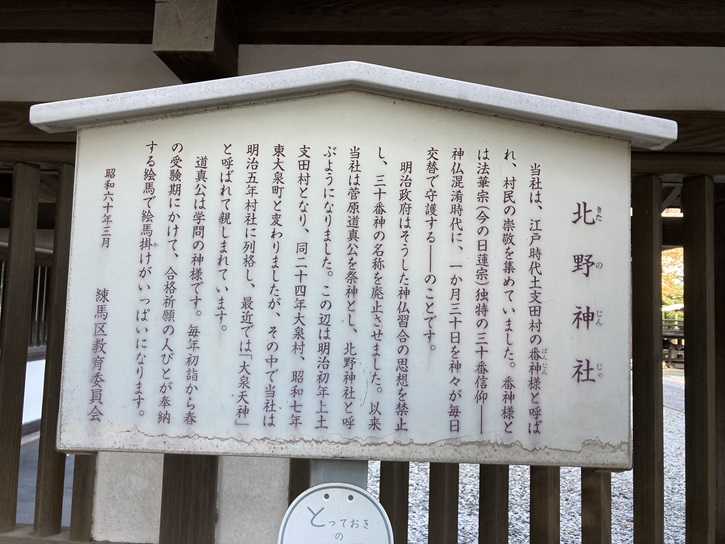 北野神社
きた の じん じゃ
当社は、江戸時代土支田村の番神様と呼ば
れ、村民の崇敬を集めていました。番神様と
ばんじん
は法華宗（今の日蓮宗）独特の三十番信仰――
神仏混淆時代に、一か月三十日を神々が毎日
交替で守護する――のことです。
明治政府はそうした神仏習合の思想を禁止
し、三十番神の名称を廃止させました。以来
当社は菅原道真公を祭神とし、北野神社と呼
ぶようになりました。この辺は明治初年上土
支田村となり、同二十四年大泉村、昭和七年
東大泉町と変わりましたが、その中で当社は
明治五年村社に列格し、最近では「大泉天神」
と呼ばれて親しまれています。
道真公は学問の神様です。毎年初詣から春
の受験期にかけて、合格祈願の人びとが奉納
する絵馬で絵馬掛けがいっぱいになります。
か
昭和六十年三月
練馬区教育委員会
とっておきの